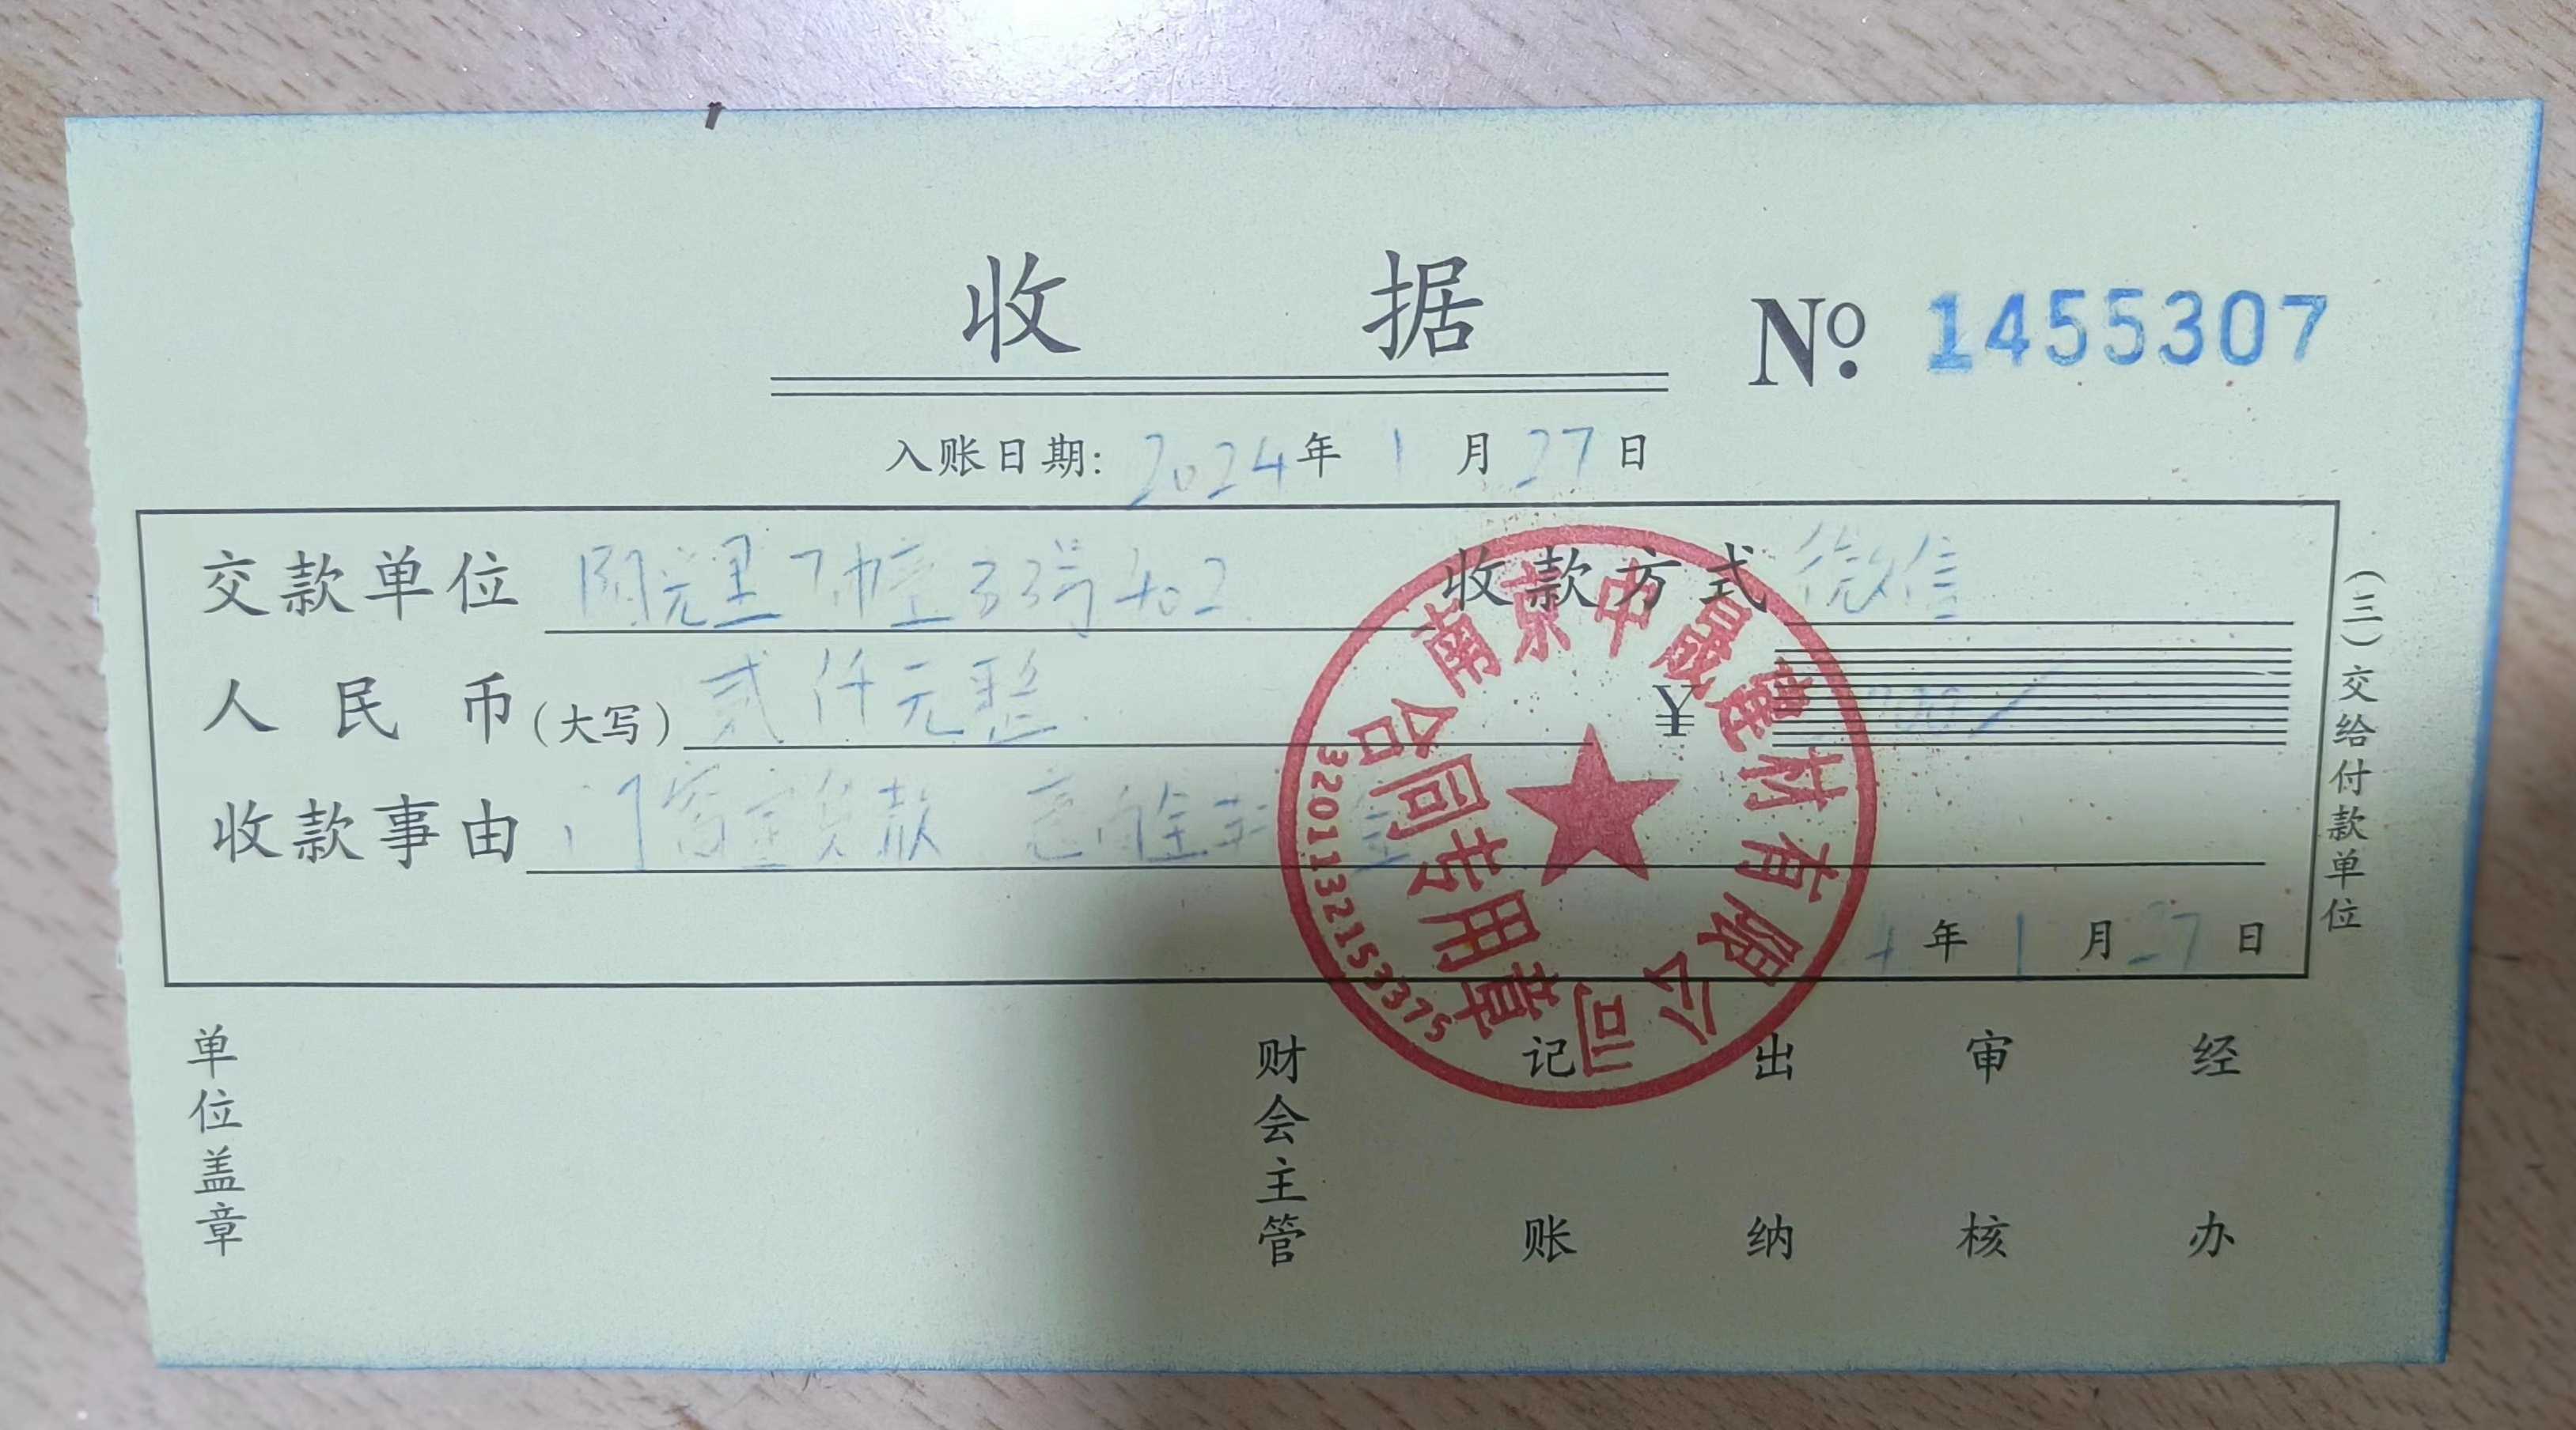 收 据
№ 1455307
入账日期: 2024年 1 月 27 日
交款单位 33号402 收款方式 微信
人民币(大写) 贰仟元整 ¥
收款事由 门窗定货款 意向金
年 1 月 27 日
(三)交给付款单位
南京中晟建材有限公司
合同专用章
3201132153375
单位盖章 财会主管 记账 出纳 审核 经办